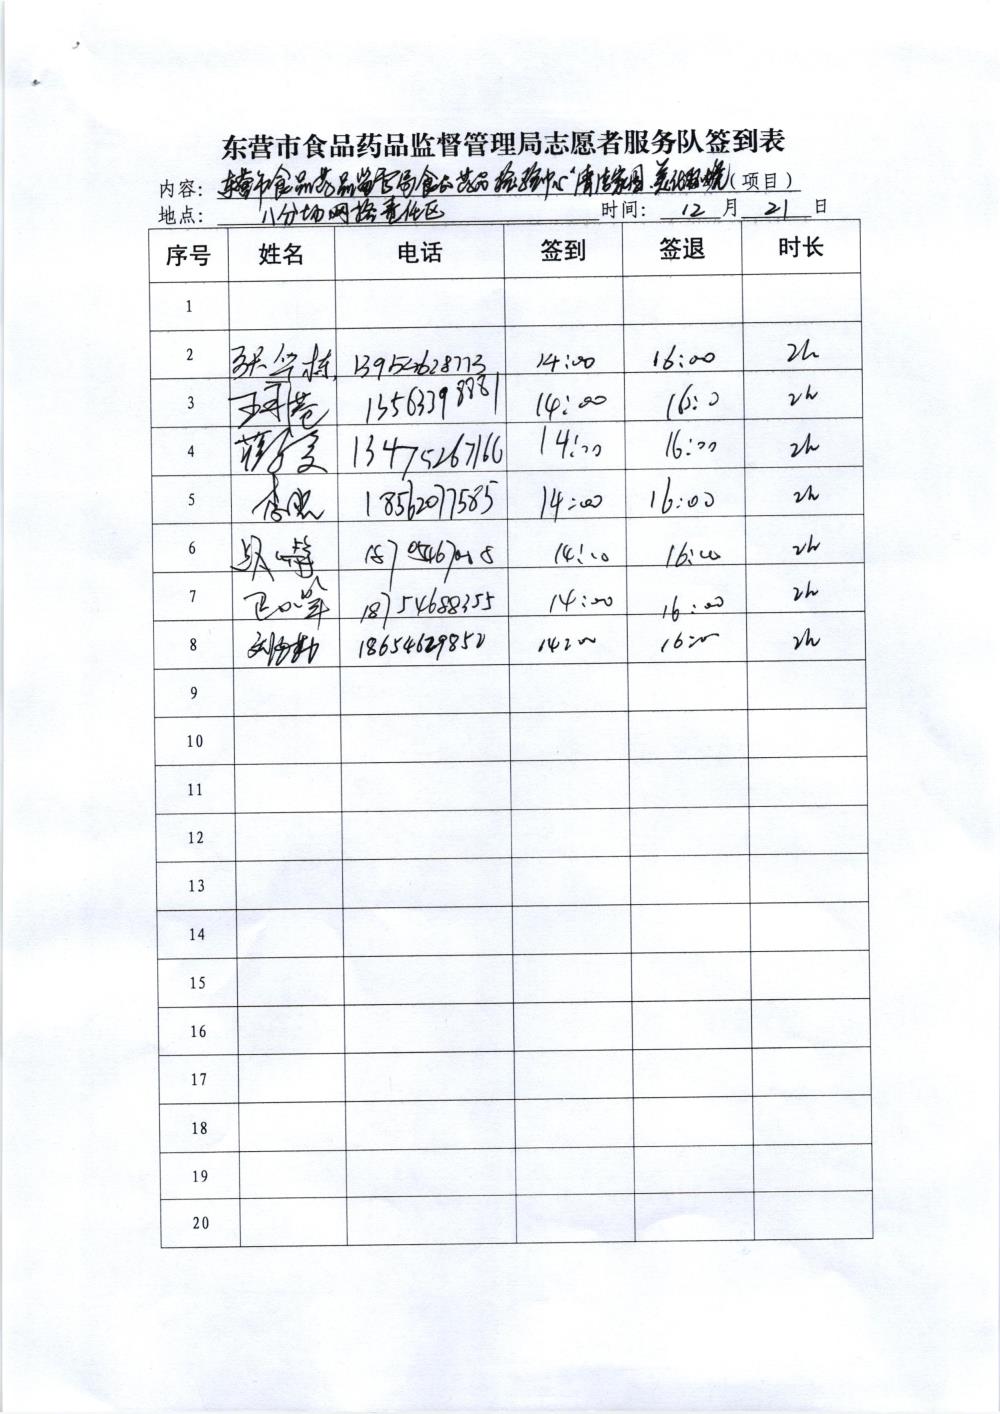 东营市食品药品监督管理局志愿者服务队签到表
内容：东营市食品药品监管局食品药品检验中心“清洁家园 美化环境（项目）
地点：八分场网格责任区 时间：12月21日
序号 姓名 电话 签到 签退 时长
1
2 张华栋 13954628773 14:00 16:00 2h
3 13563398881 14:00 16:00 2h
4 13475267166 14:00 16:00 2h
5 18562077585 14:00 16:00 2h
6 14:00 16:00 2h
7 18754688355 14:00 16:00 2h
8 18654629852 14:00 16:00 2h
9
10
11
12
13
14
15
16
17
18
19
20